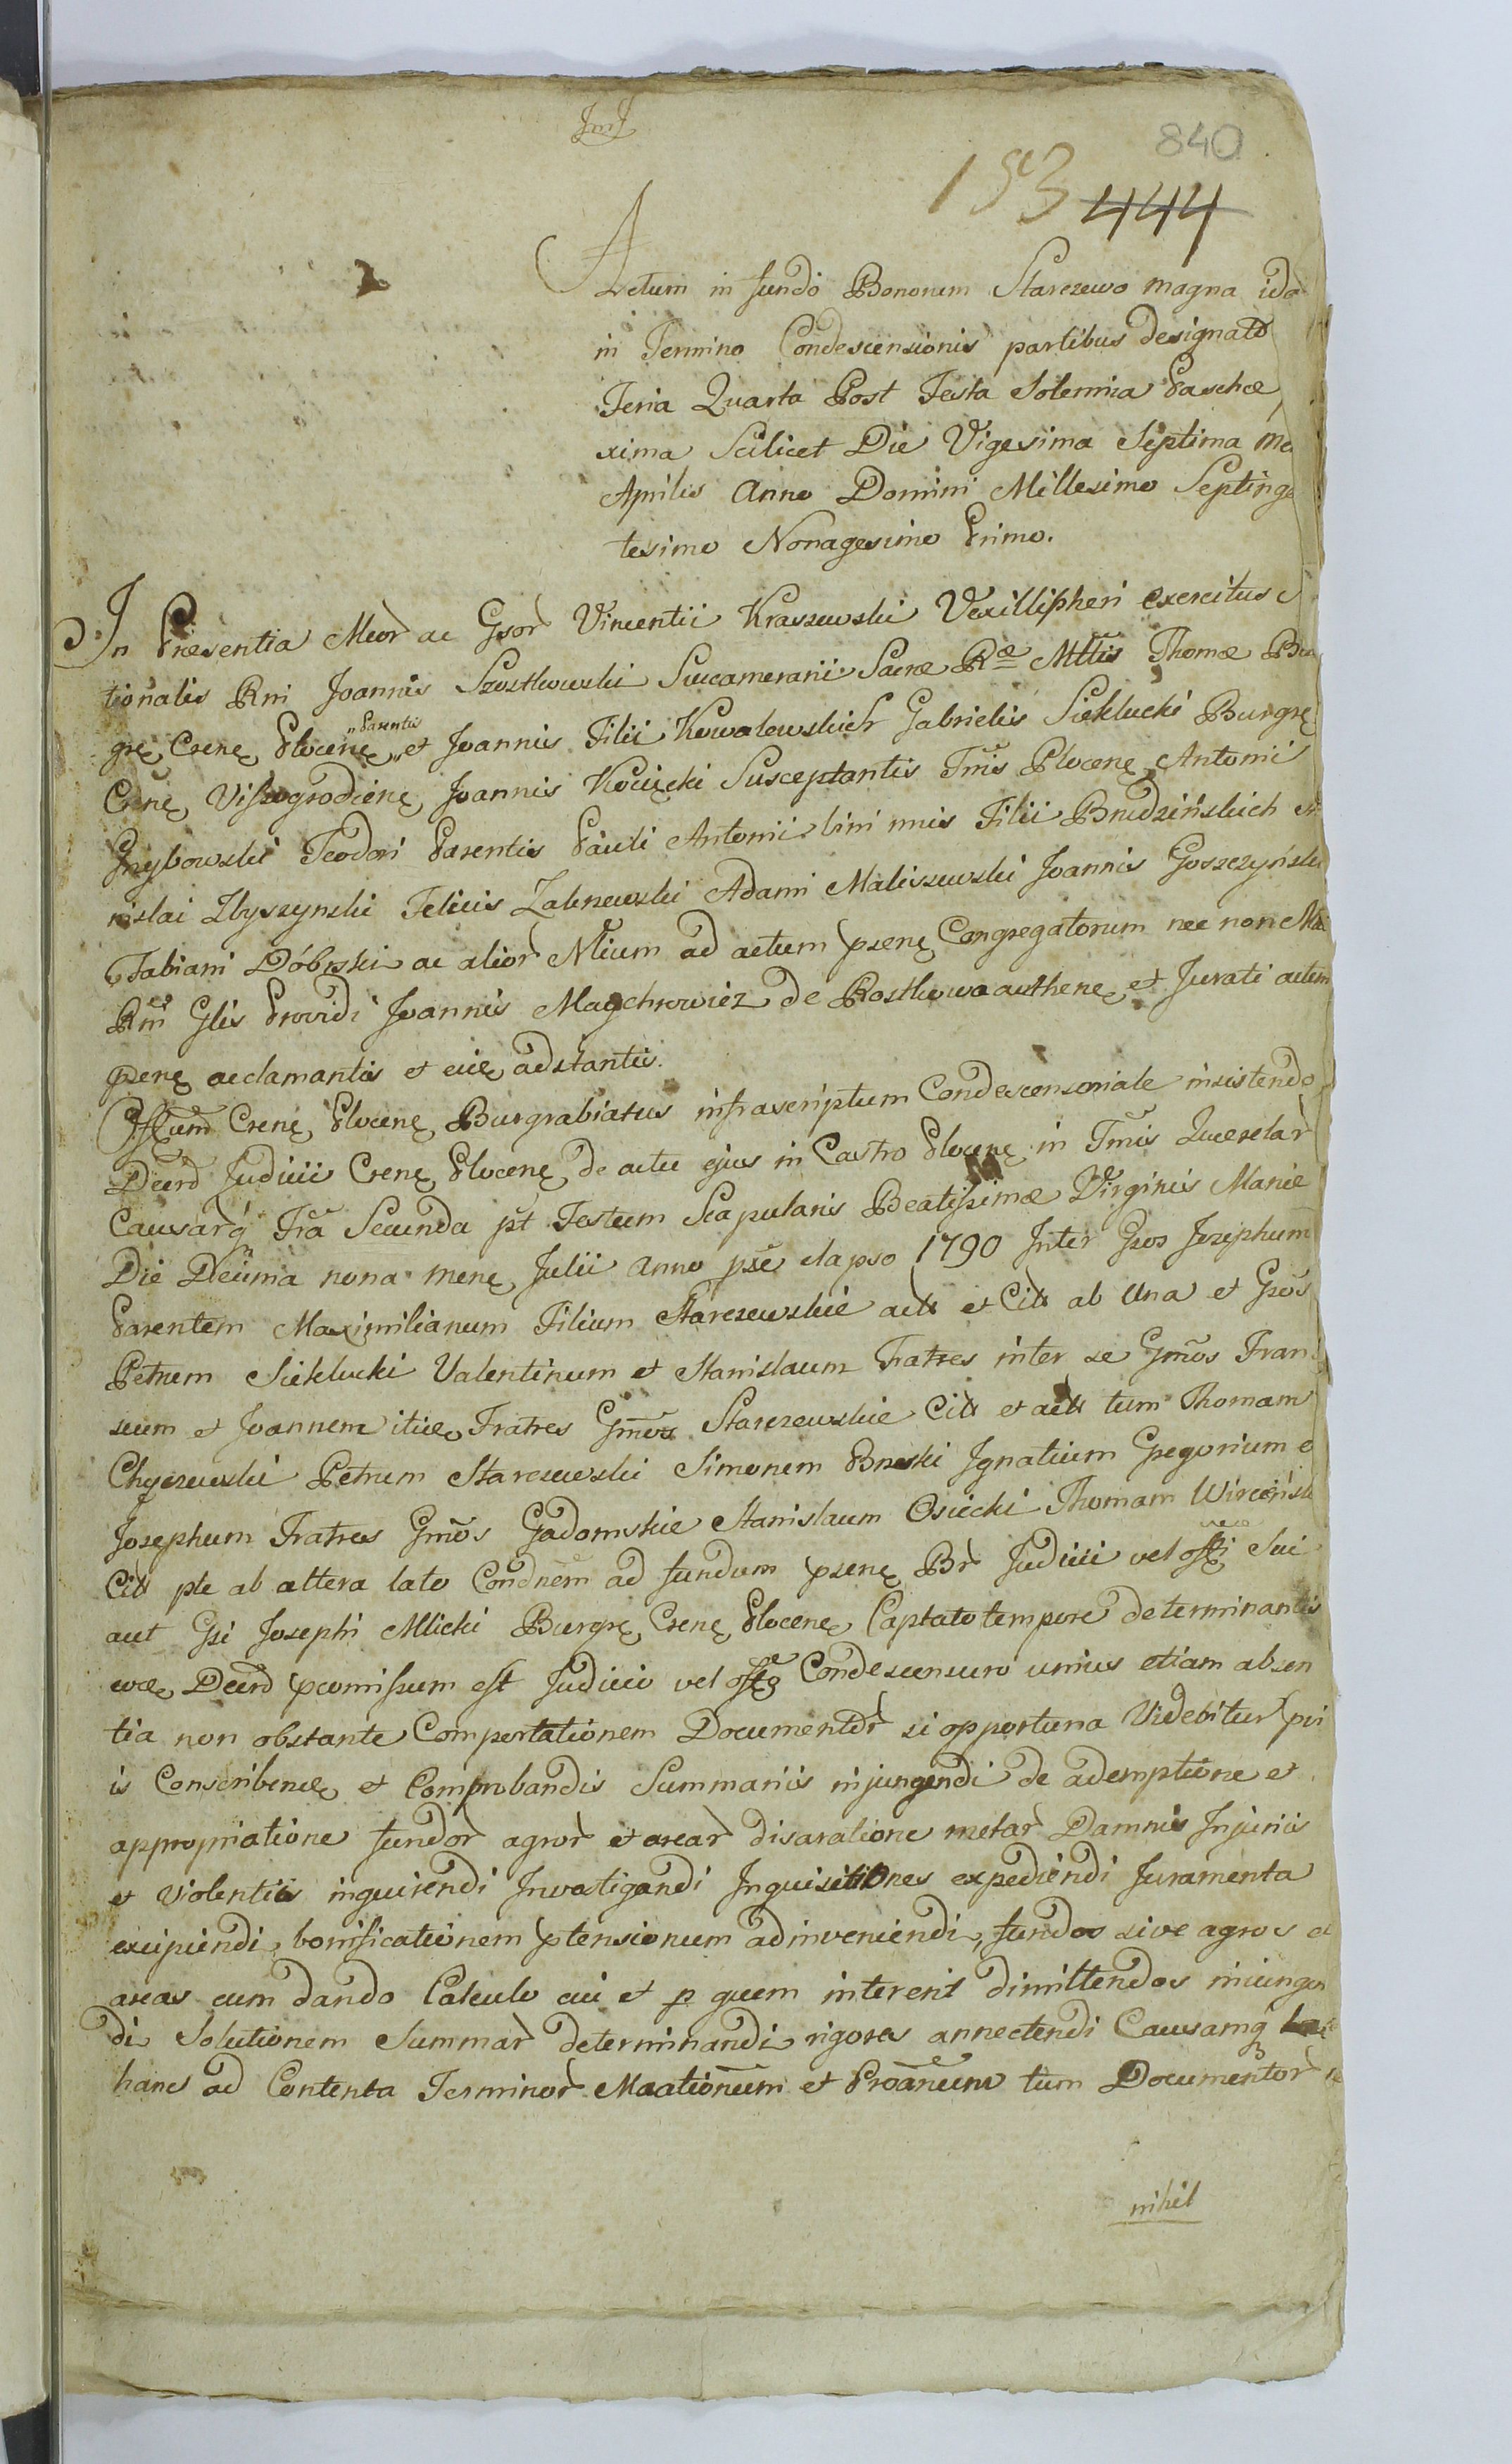 JmJ
840
153 444
Actum in fundo Bonorum Starczewo magna
in Termino Condescensionis partibus designato
Feria Quarta Post Festa Solemnia Paschæ
xima Scilicet Die Vigesima Septima
Aprilis Anno Domini Millesimo Septinge
tesimo Nonagesimo Primo.
In Præsentia Mcor ac Gsor Vincentii Kraszewski Vexillipheri exercitus
tionalis Rni Joannis Szostkowski Succamerarii Sacræ Ræ Mttis Thomæ
grę Crenę Plocenę „Parentis et Joannis Filii Kowalewskich Gabrielis Sieklucki Burgrę
Crenę Vissogrodienę Joannis Kocięcki Susceptantis Tmis Plocenę Antonii
Grzybowski Teodori Parentis Pauli Antonii Filii Brudzińskich
nislai Zbyszynski Felicis Zalenewski Adami Maliszewski Joannis Goszczyńsk
Fabiani Dóbrski ac alior Nlium ad actum psenę Congregatorum nec non
Rni Glis Providi Joannis Maychrowicz de Rostkowo authenę et Jurati actum
psenę acclamantis et circ adstantis.
Offium Crenę Plocenę Burgrabiatus infrascriptum Condescensoriale insistendo
Decrō Judicii Crenę Plocenę de actu ejus in Castro Plocenę in Tmis Querelar
Causarq Fra Secunda pt Festum Scapularis Beatissimæ Virginis Mariæ
Die Decima nona menę Julii Anno pse elapso 1790 Inter Gsos Josephum
Parentem Maximilianum Filium Starczewskie acts et Cits ab Una et Gsos
Petrum Sieklucki Valentinum et Stanislaum Fratres inter se Gmos Fran
scum et Joannem itidę Fratres Gmos Starczewskie Cits et acts tum Thomam
Chyczewski Petrum Starczewski Simonem Brzeski Ignatium Gregorium
Josephum Fratres Gmos Gadomskie Stanislaum Osiecki Thomam Wirceńsk
Cits pte ab altera lato Condnem ad fundum psenę Br Judicii vel offi sui
aut Gsi Josephi Mlicki Burgrę Crenę Plocenę Captato tempore determinantis
Decrō pcomissum est Judicio vel Condescensuro unius etiam absen
tia non obstante Comportationem Documentor si opportuna Videbitur
is Conscribendę et Comprobandis Summariis injungendi de ademptione et
appropriatione fundor agror et arear disaratione metar Damnis Injuriis
et Violentiis inquirendi Investigandi Inquisitiones expediendi Juramenta
excipiendi, bonificationem ptensionum adinveniendi, fundos sive agros
areas eum dando Calculo cui et p quem intererit dimittendos iniungen
di Solutionem Summar determinandi rigores annectendi Causamq
hanc ad Contenta Terminor Maationum et Proanum tum Documentor
nihil